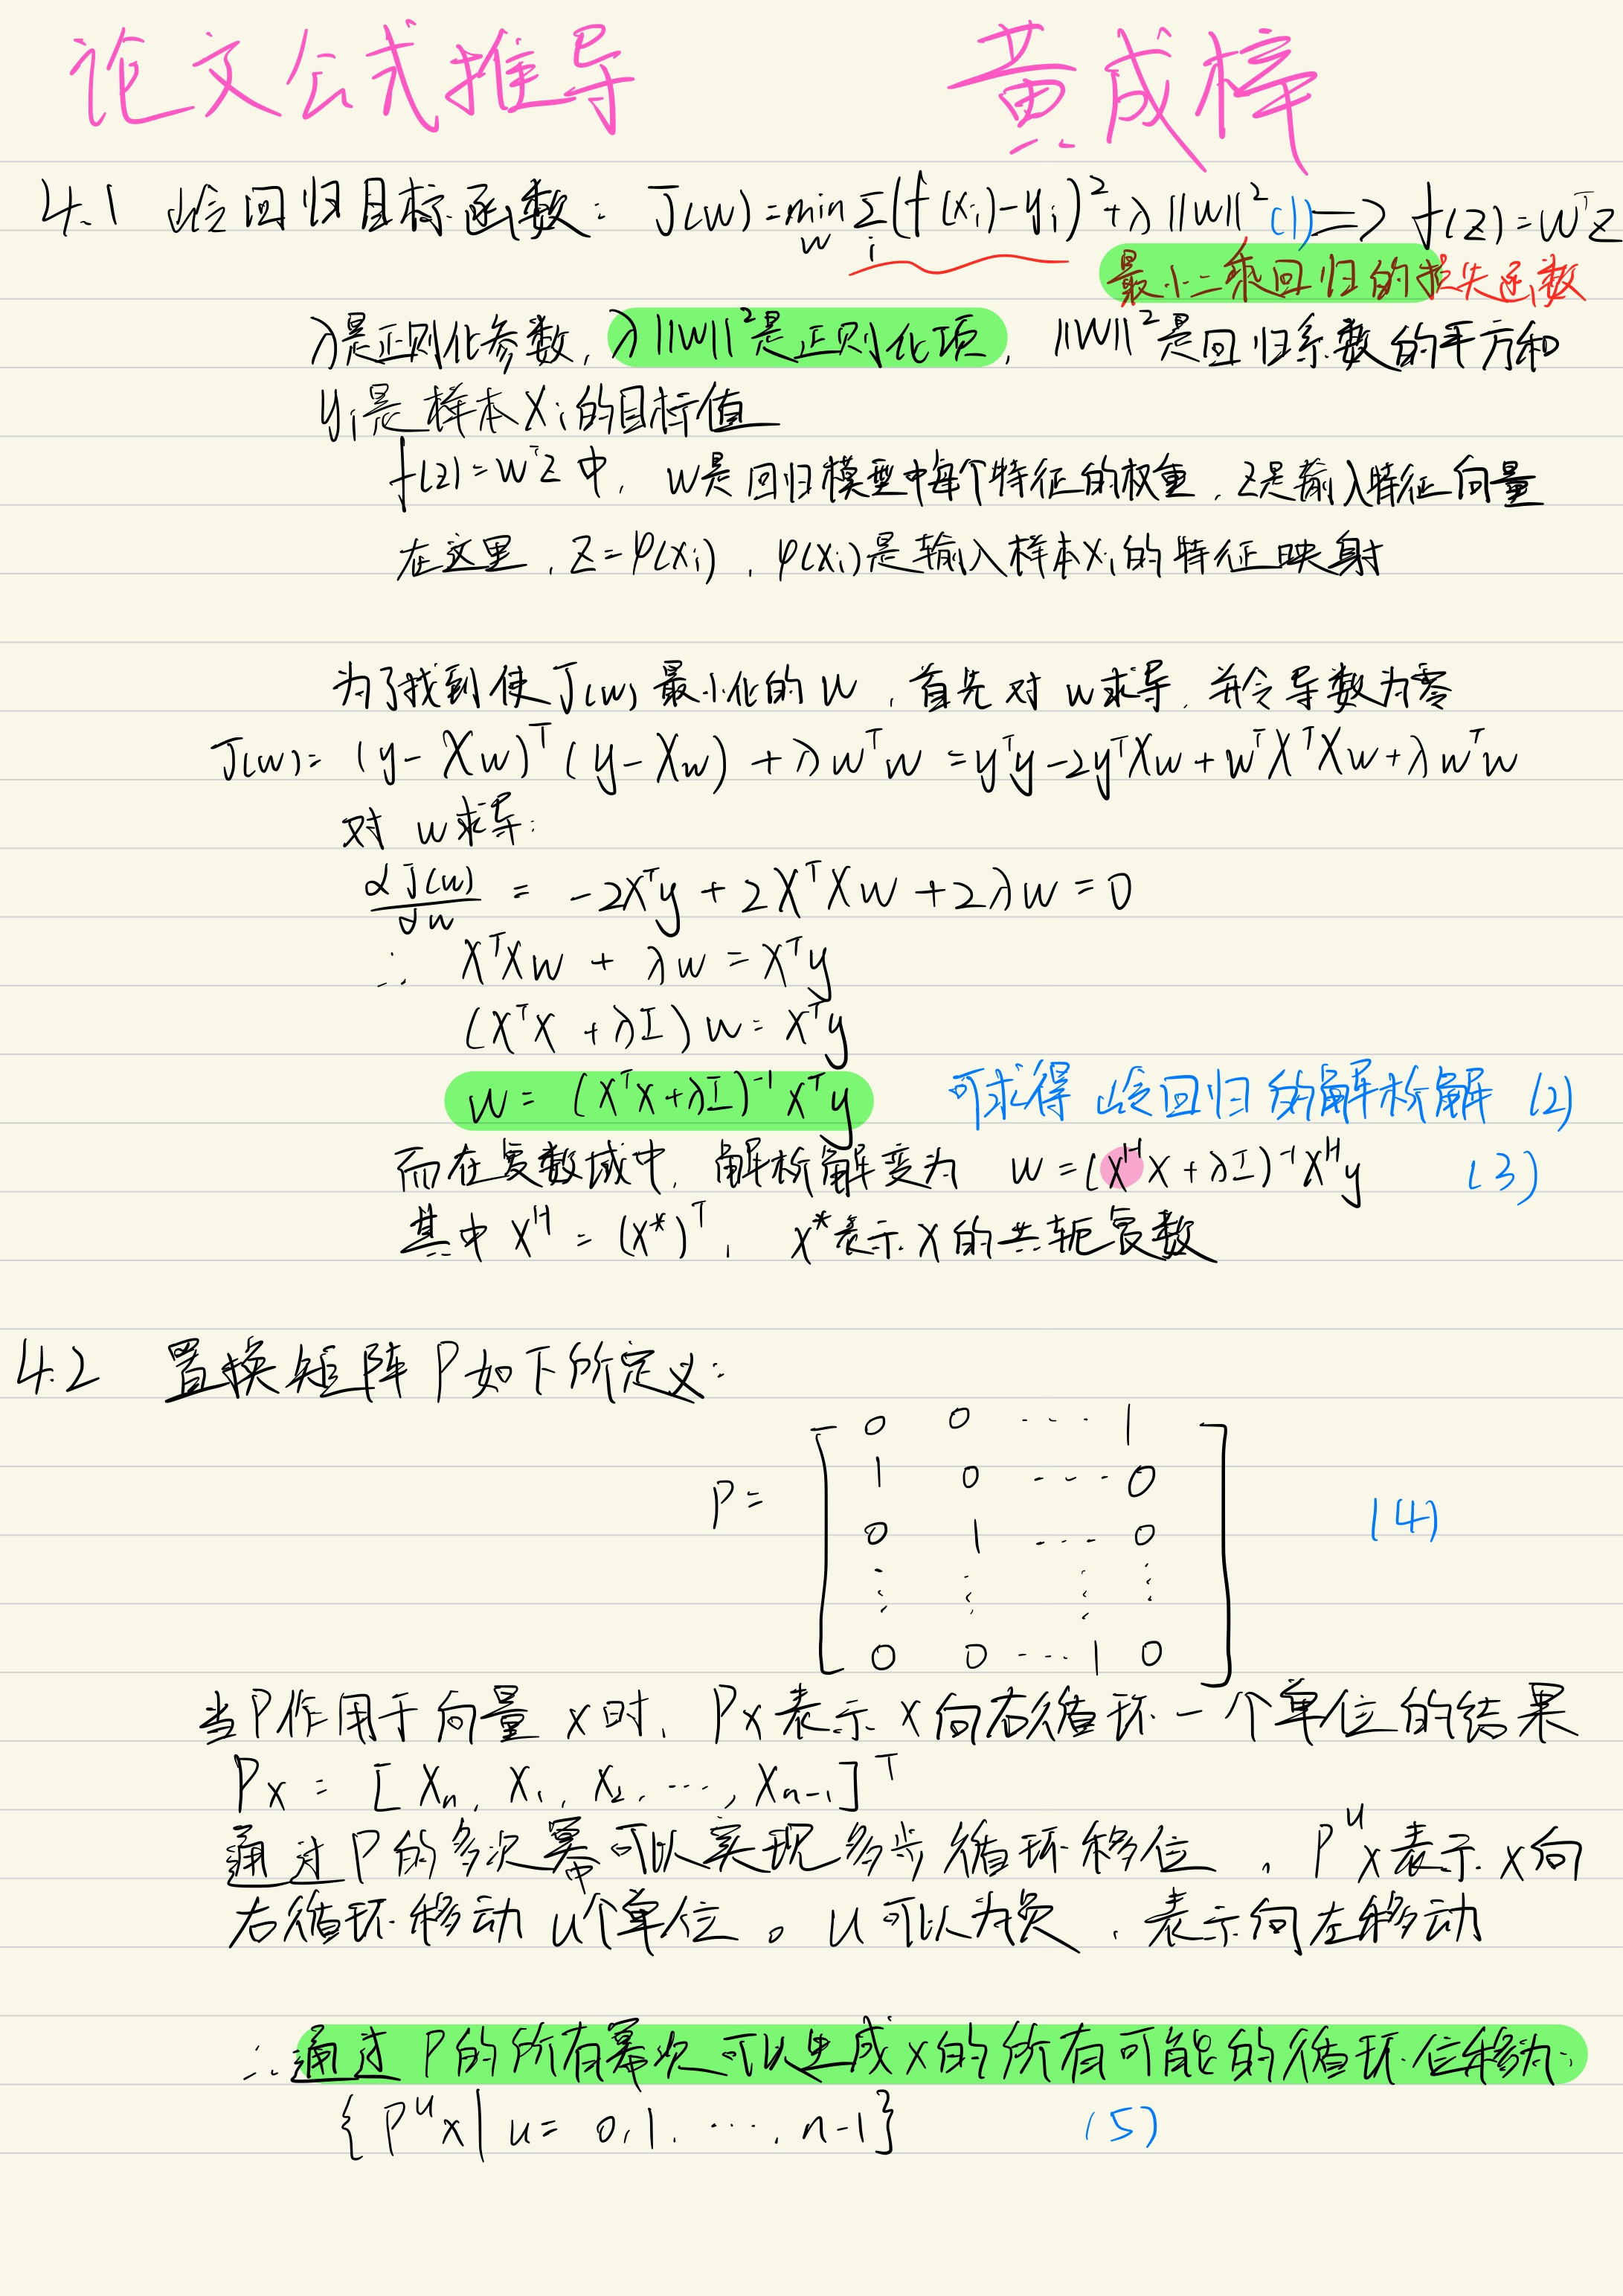 论文公式推导 黄成梓
4.1 岭回归目标函数: J(w)=min_w Σ_i (f(x_i)-y_i)²+λ||w||² (1) => f(z)=wᵀz
最小二乘回归的损失函数
λ是正则化参数, λ||w||²是正则化项, ||w||²是回归系数的平方和
y_i是样本x_i的目标值
f(z)=wᵀz中, w是回归模型中每个特征的权重, z是输入特征向量
在这里, z=φ(x_i), φ(x_i)是输入样本x_i的特征映射
为了找到使J(w)最小化的w, 首先对w求导, 并令导数为零
J(w)= (y-Xw)ᵀ(y-Xw)+λwᵀw =yᵀy-2yᵀXw+wᵀXᵀXw+λwᵀw
对 w求导:
∂J(w)/∂w = -2Xᵀy + 2XᵀXw + 2λw = 0
∴ XᵀXw + λw = Xᵀy
(XᵀX + λI)w = Xᵀy
w = (XᵀX+λI)⁻¹Xᵀy 可求得岭回归的解析解 (2)
而在复数域中, 解析解变为 w=(XᴴX+λI)⁻¹Xᴴy (3)
其中Xᴴ = (X*)ᵀ, X*表示X的共轭复数
4.2 置换矩阵P如下所定义:
0 0 ··· 1
1 0 ··· 0
P= 0 1 ··· 0 (4)
⋮ ⋮ ⋮ ⋮
0 0 ··· 1 0
当P作用于向量x时, Px表示x向右循环一个单位的结果
Px = [x_n, x_1, x_2, ···, x_{n-1}]ᵀ
通过P的多次幂可以实现多步循环移位, Pᵘx表示x向
右循环移动u个单位。u可以为负, 表示向左移动
∴通过P的所有幂次可以生成x的所有可能的循环位移为:
{Pᵘx| u= 0,1, ···, n-1} (5)